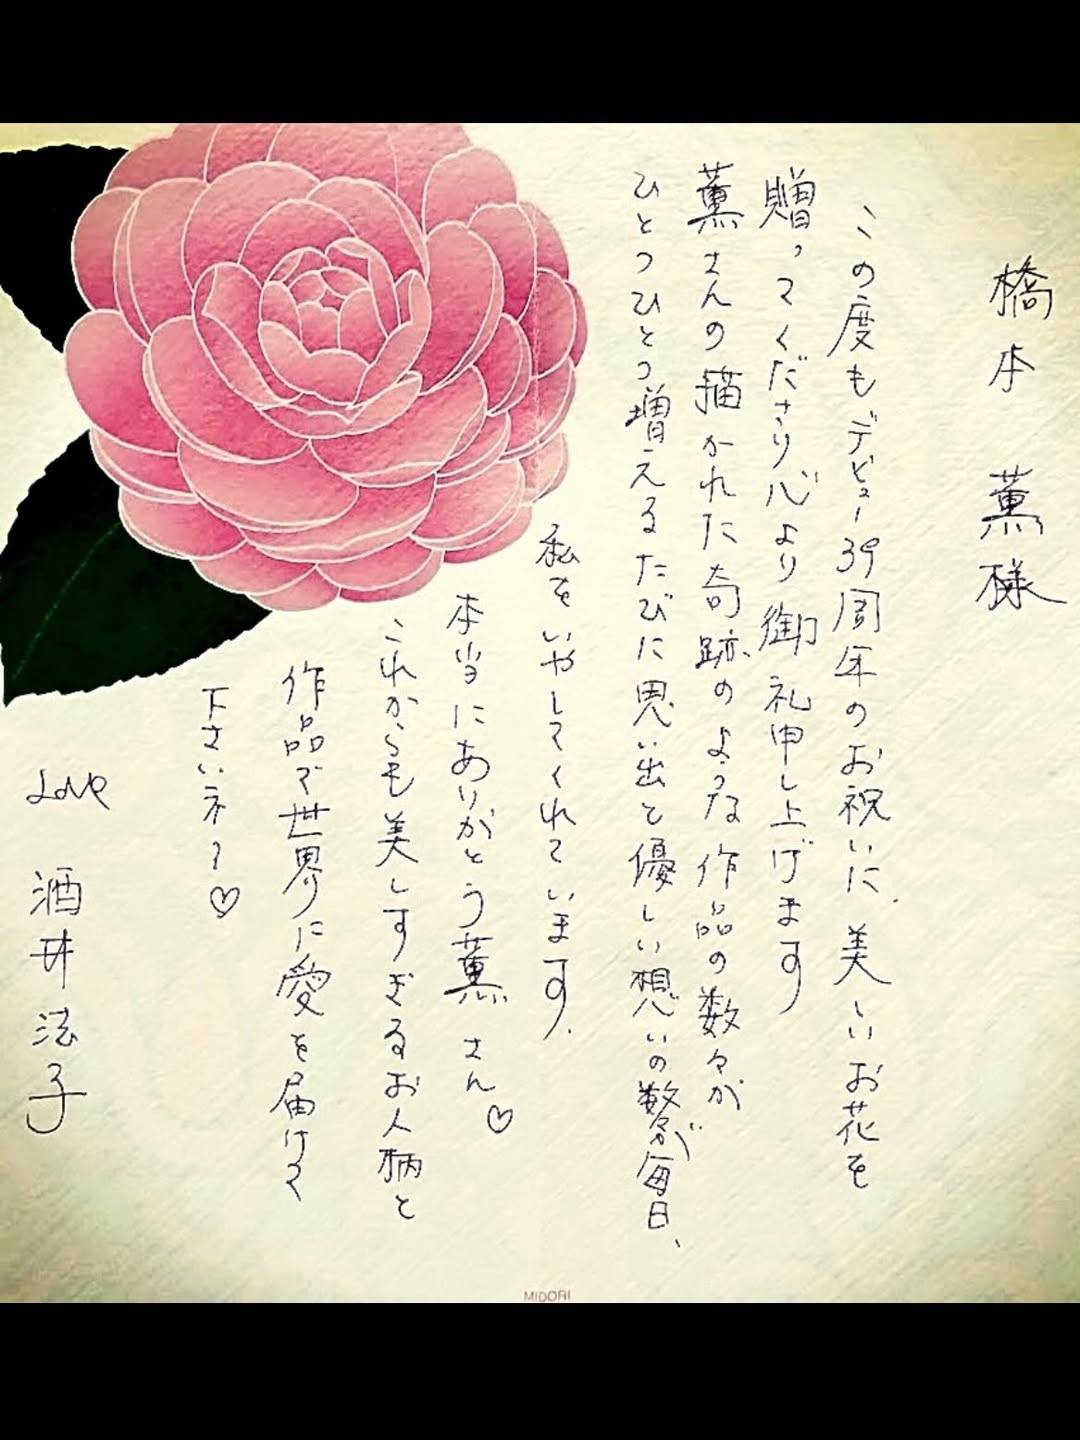 橋本 薫様
この度もデビュー39周年のお祝いに、美しいお花を
贈ってくださり心より御礼申し上げます
薫さんの描かれた奇跡のような作品の数々が
ひとつひとつ増えるたびに思い出と優しい想いの数々が毎日、
私をいやしてくれています.
本当にありがとう薫さん♡
これからも美しすぎるお人柄と
作品で世界に愛を届けて
下さいネ〜♡
Love 酒井法子
MIDORI